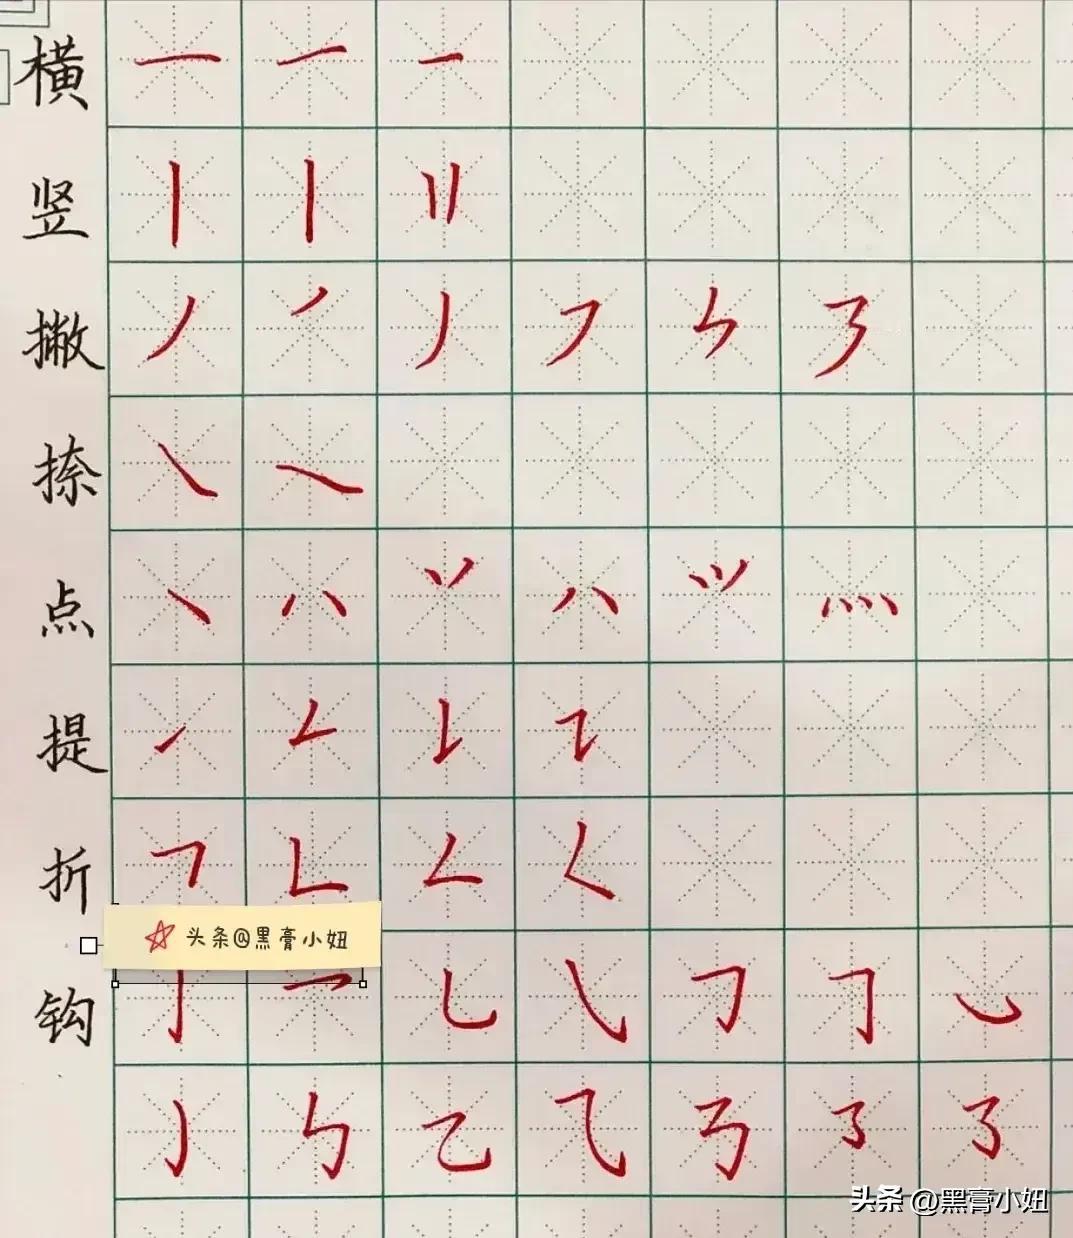 横
竖
撇
捺
点
提
折
头条@黑膏小妞
钩
头条 @黑膏小妞